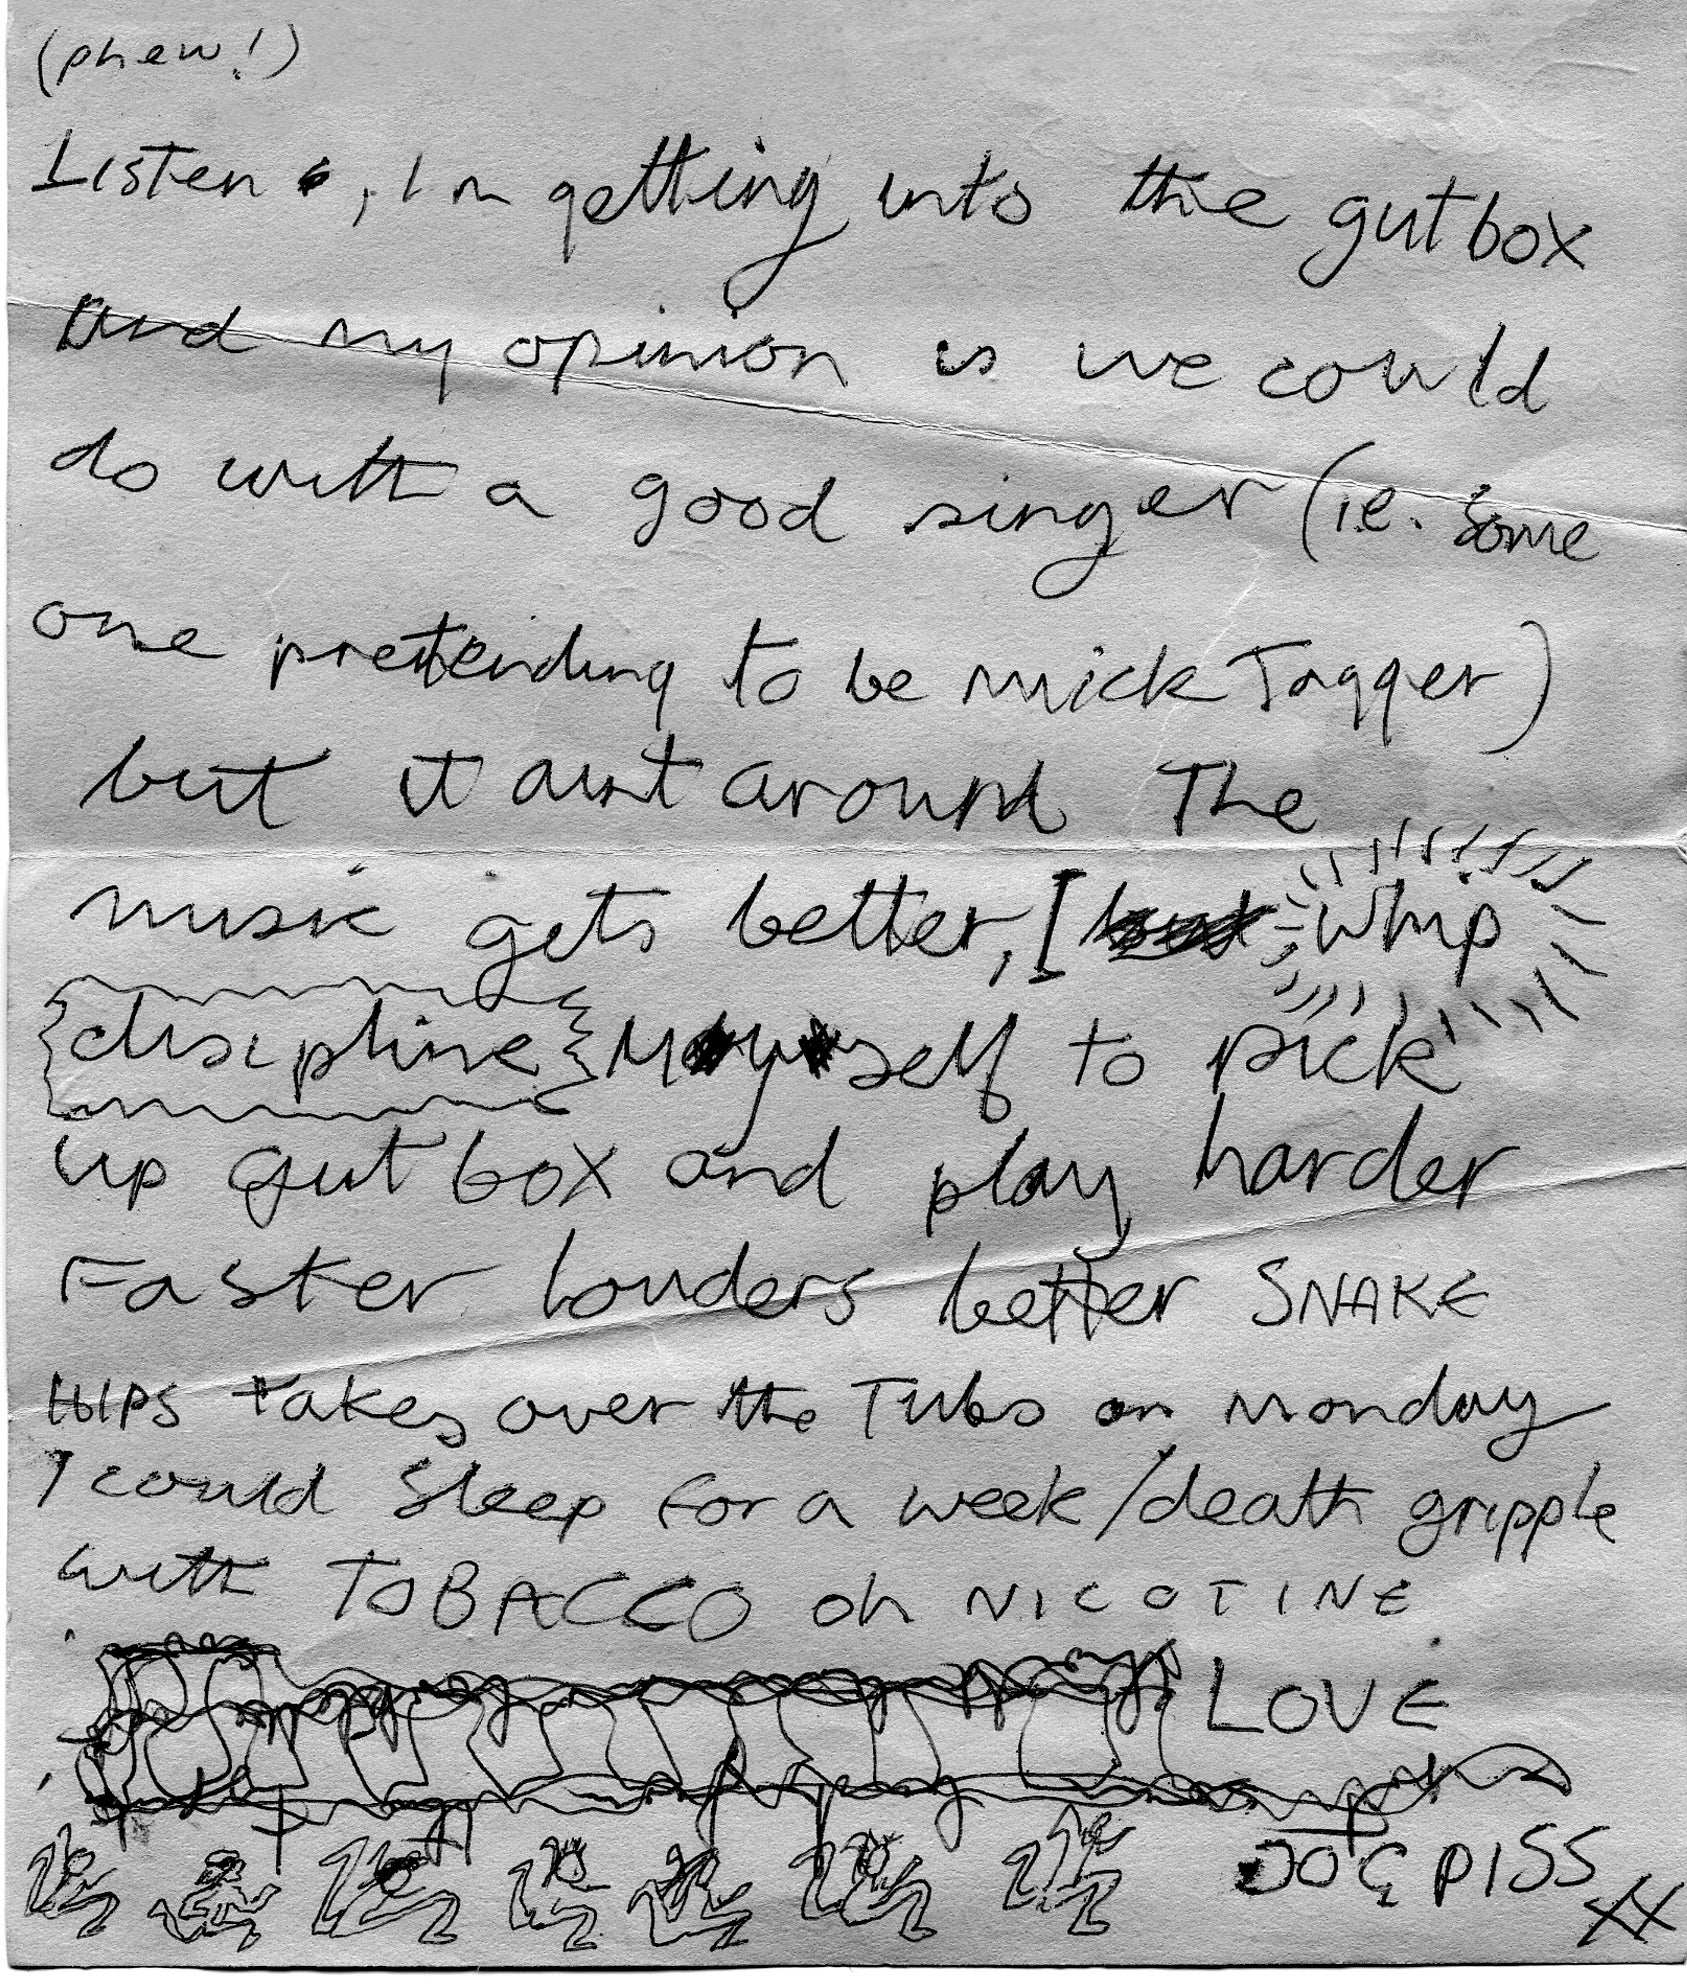 (phew!)
Listen, Im getting into the gutbox
and my opinion is we could
do with a good singer (ie. some
one pretending to be mick Jagger)
but it aint around The
music gets better, I whip
discipline Myself to pick
up gut box and play harder
Faster louders better SNAKE
HIPS takes over the Tubs on monday
I could sleep for a week/death gripple
with TOBACCO oh NICOTINE
LOVE
DOG PISS XX